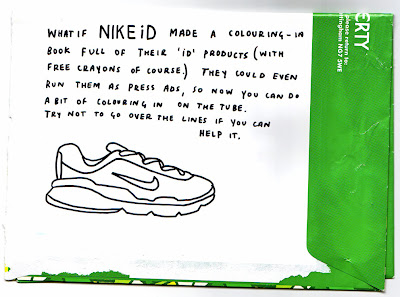 WHAT IF NIKEiD MADE A COLOURING-IN
BOOK FULL OF THEIR 'iD' PRODUCTS (WITH
FREE CRAYONS OF COURSE.) THEY COULD EVEN
RUN THEM AS PRESS ADS, SO NOW YOU CAN DO
A BIT OF COLOURING IN ON THE TUBE.
TRY NOT TO GO OVER THE LINES IF YOU CAN
HELP IT.
ERTY
please return to:
ttingham NG7 5WE